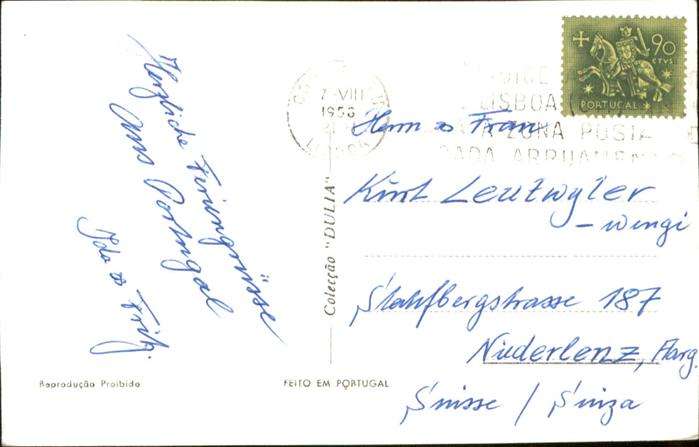 Herzliche Feriengrüsse
aus Portugal
Ida & Fritz.
Reprodução Proibida
FEITO EM PORTUGAL
Colecção "DULIA"
7-VIII
90
CTVS.
PORTUGAL
LISBOA
ZONA POSTA
CADA ARRUAMEN
Herrn & Frau
Kurt Leutwyler
-Wengi
Stahfbergstrasse 187
Niederlenz, Aarg.
Suisse / Suiza